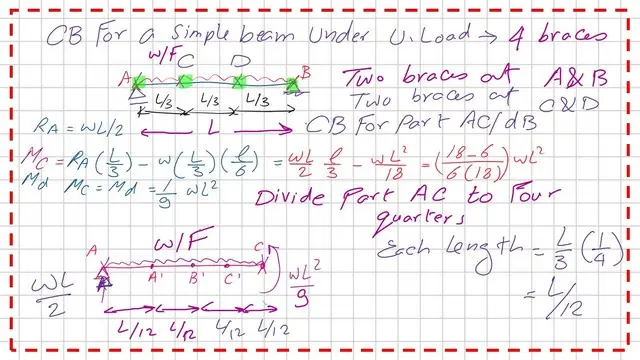 CB For a Simple beam Under U. Load → 4 braces
W/F
C D
A B
Two braces at A&B
L/3 L/3 L/3
Two braces at C&D
RA = WL/2
L
CB For Part AC/dB
Mc = RA(L/3) - W(L/3)(l/6) = WL/2 l/3 - WL²/18 = (18-6/6(18)) WL²
Md Mc = Md = 1/9 WL²
Divide Part AC to Four quarters
A W/F C
Each Length = L/3 (1/4)
WL/2
A' B' C'
WL²/9
= L/12
L/12 L/12 L/12 L/12